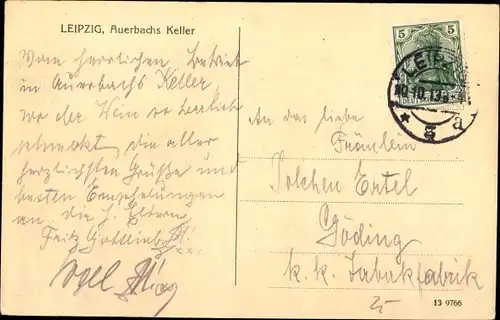 LEIPZIG, Auerbachs Keller
Vom herrlichen
in Auerbachs Keller,
wo der Wein so herrlich
schmeckt, die aller
herzlichsten Grüße und
besten Empfehlungen
an die l. Eltern
Fritz Gottlieb
5
LEIPZIG
10.13
* 5 a
An das liebe
Fräulein
Ertel
Göding
k. k. Tabakfabrik
13 9766